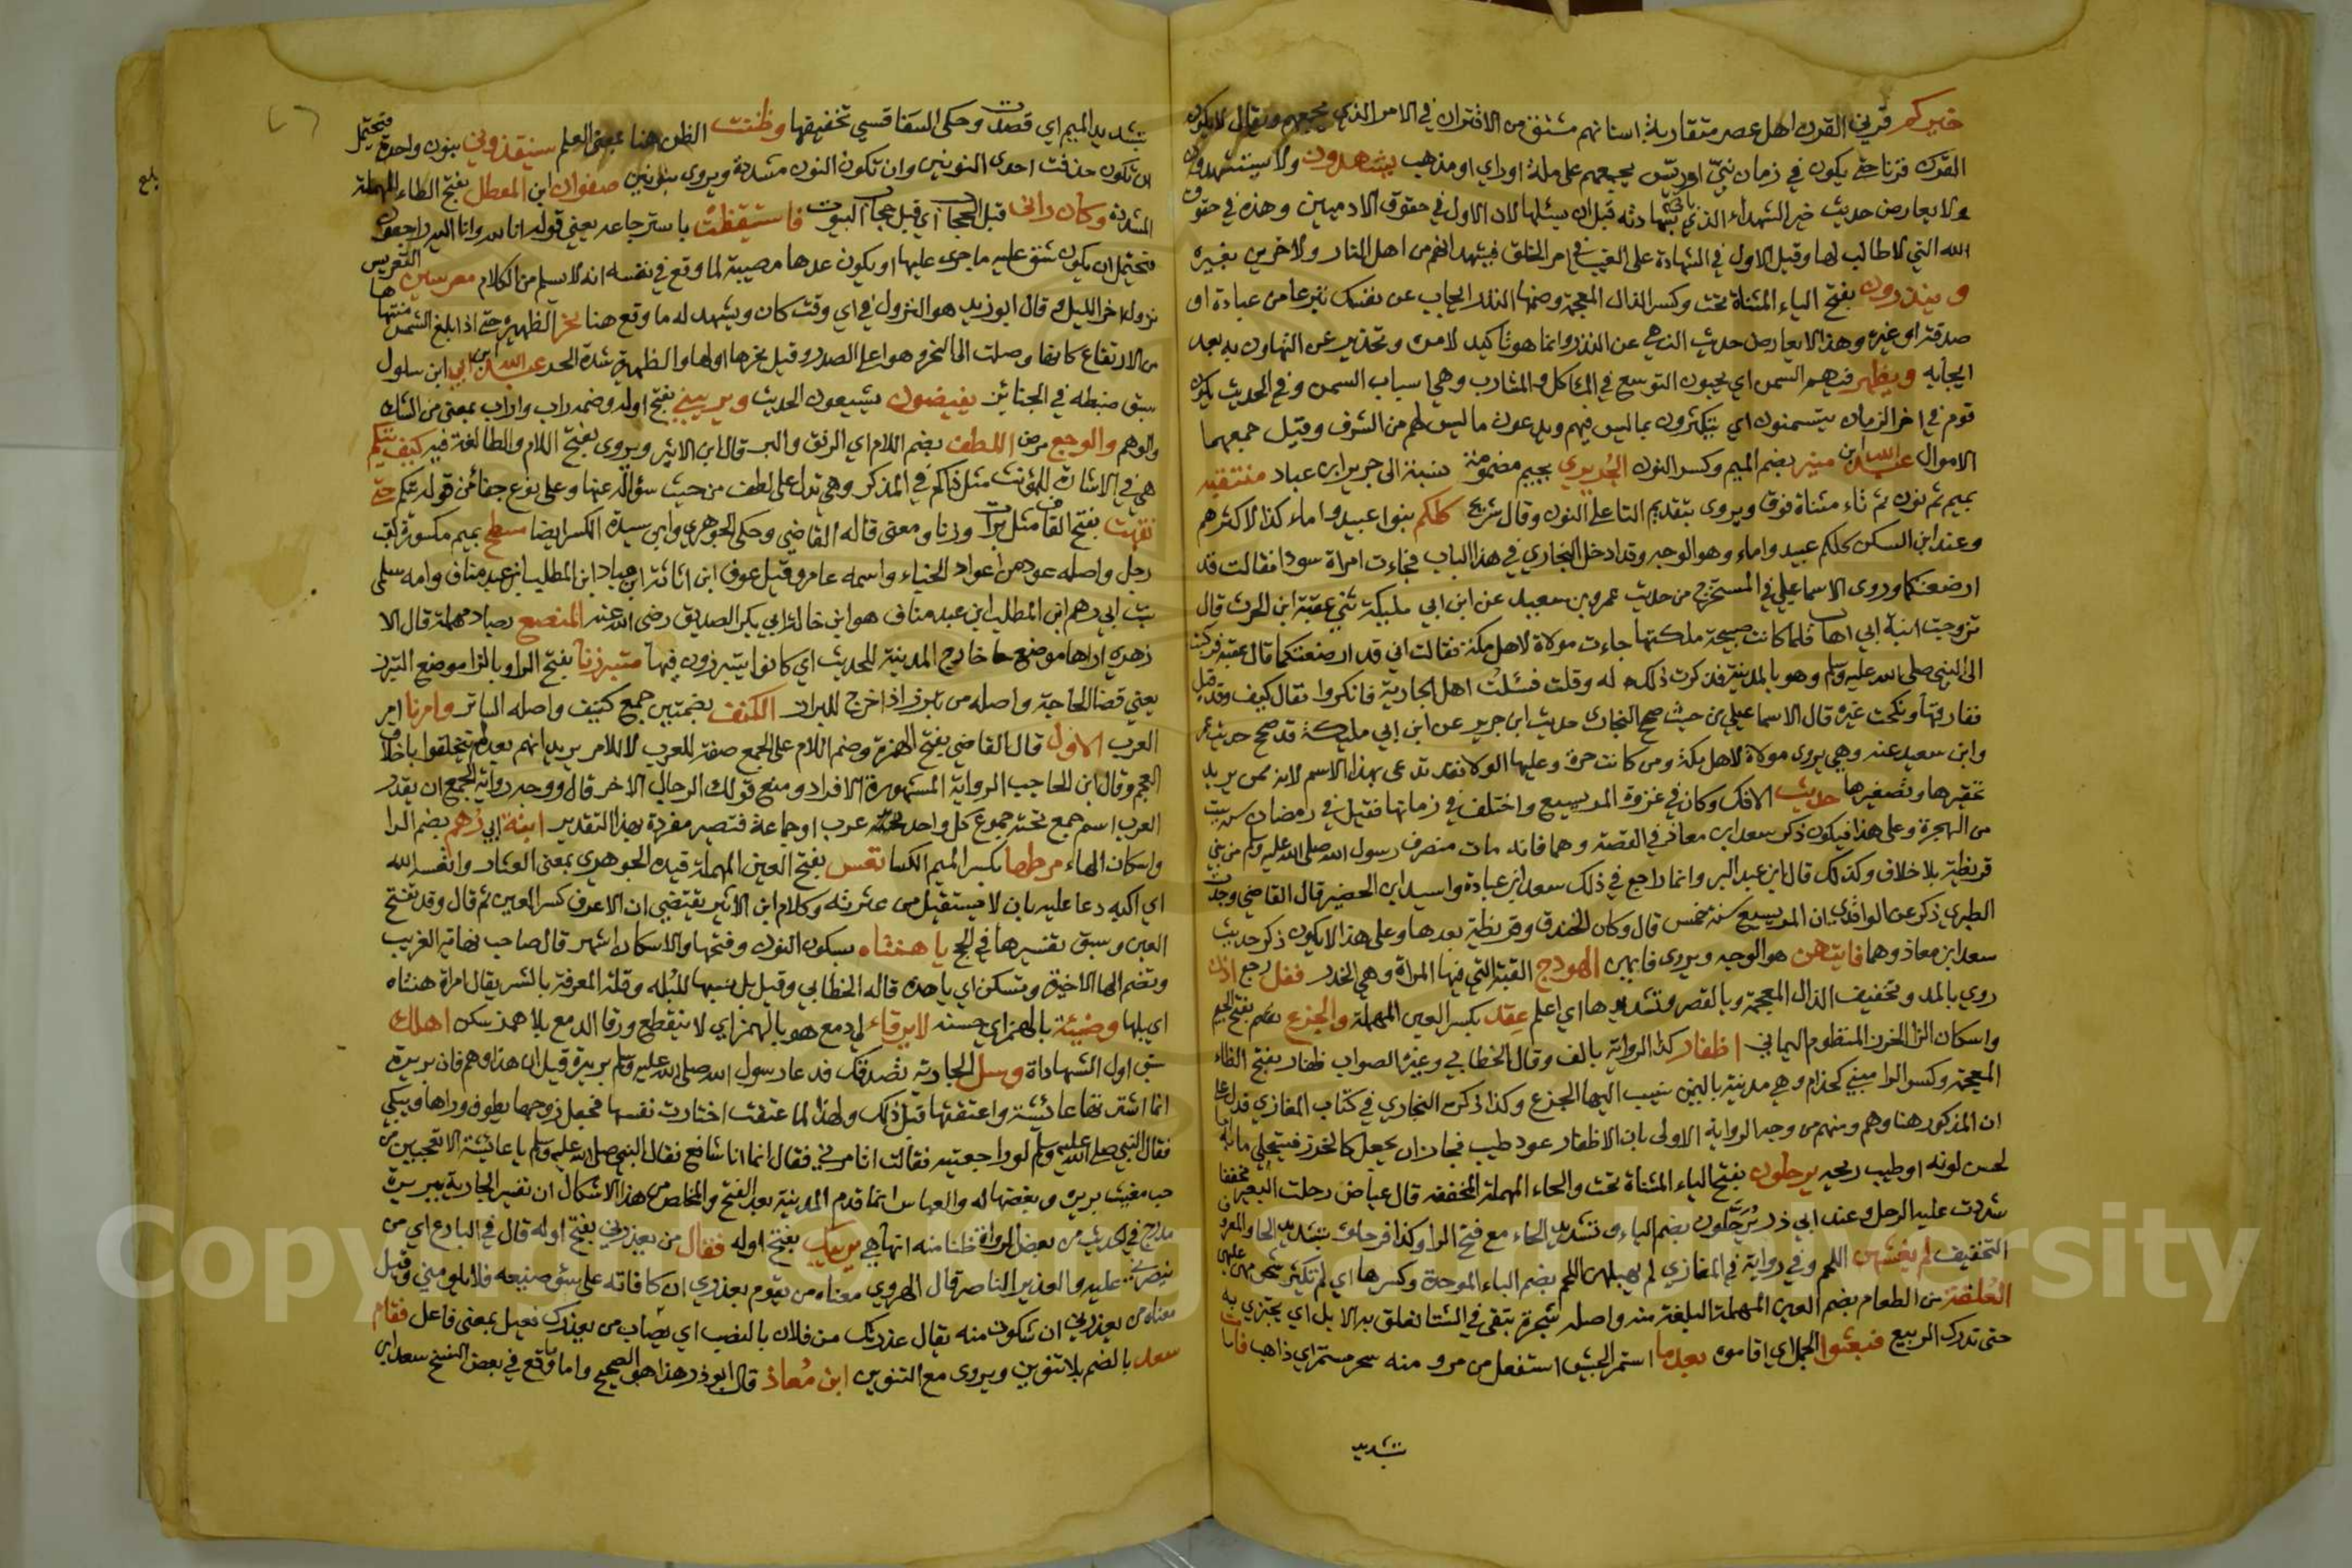 خيركم قرني القرن اهل عصر متقاربة اسنانهم مشتق من الاقتران في الامر الذي يجمعهم ويقال لا يكون
القرن قرنا حتى يكون في زمان نبي او ريس يجمعهم على ملة او راي او مذهب يشهدون ولا يستشهدون
ولا يعارض حديث خير الشهداء الذي ياتي بشهادته قبل ان يسئلها لان الاول في حقوق الادميين وهذه في حقوق
الله التي لا طالب لها وقيل الاول في الشهادة على الغيب في امر الخلق فيشهد انهم من اهل النار ولاخرين بغيره
وينذرون بفتح الياء المثناة تحت وكسر الذال المعجمة وضمها النذر ايجاب عن نفسك تبرعا من عبادة او
صدقة او غيره وهذا لا يعارض حديث النهي عن النذر وانما هو تاكيد لامره وتحذير عن التهاون به بعد
ايجابه ويظهر فيهم السمن اي يحبون التوسع في المآكل والمشارب وهي اسباب السمن وفي الحديث يكون
قوم في اخر الزمان يتسمنون اي يتكثرون بما ليس فيهم ويدعون ما ليس لهم من الشرف وقيل جمعهما
الاموال عبد الله ابن منير بضم الميم وكسر النون الجُريري بجيم مضمومة نسبة الى جرير ابن عباد منتقبة
بميم ثم نون ثم تاء مثناة فوق ويروى بتقديم التا على النون وقال شريح كلكم بنوا عبيد واماء كذا لاكثرهم
وعند ابن السكن كلكم عبيد واماء وهو الوجه وقد ادخل البخاري في هذا الباب فجاءت امراة سودا فقالت قد
ارضعتكما وروى الاسماعيلي في المستخرج من حديث عمر بن سعيد عن ابن ابي مليكة ثني عقبة ابن الحرث قال
تزوجت ابنة ابي اهاب فلما كانت صبيحة ملكتها جاءت مولاة لاهل مكة فقالت اني قد ارضعتكما قال عقبة فركبت
الى النبي صلى الله عليه وسلم وهو بالمدينة فذكرت ذلك له وقلت فسئلت اهل الجارية فانكروا فقال كيف وقد قيل
ففارقتها ونكحت غيره قال الاسماعيلي من حيث صحح البخاري حديث ابن جريج عن ابن ابي مليكة قد صح حديث عمر
وابن سعيد عنه وهي يروى مولاة لاهل مكة ومن كانت حرة وعليها الولا فقد تدعى بهذا الاسم لانه ممن يريد
تحقيرها وتصغيرها حديث الافك وكان في غزوة المريسيع واختلف في زمانها فقيل في رمضان سنة ست
من الهجرة وعلى هذا فيكون ذكر سعد ابن معاذ في القصة وهما فانه مات منصرف رسول الله صلى الله عليه وسلم من بني
قريظة بلا خلاف وكذلك قال ابن عبد البر وانما راجع في ذلك سعد ابن عبادة واسيد ابن الحضير قال القاضي وجدت
الطبري ذكر عن الواقدي ان المريسيع سنة خمس قال وكان الخندق وقريظة بعدها وعلى هذا لا يكون ذكر حديث
سعد ابن معاذ وهما فايتهن هو الوجه ويروى فايهن الهودج القبة التي فيها المراة وهي الخدر فقل رجع اذن
روي بالمد وتخفيف الذال المعجمة وبالقصر وتشديدها اي اعلم عقد بكسر العين المهملة والجزع بفتح الجيم
واسكان الزا الخرز المنظوم اليماني اظفار كذا الرواية بالف وقال الخطابي وغيره الصواب ظفار بفتح الظاء
المعجمة وكسر الرا مبني كحذام وهي مدينة باليمن ينسب اليها الجزع وكذا ذكره البخاري في كتاب المغازي فدل على
ان المذكور هنا وهم ومنهم من وجه الرواية الاولى بان الاظفار عود طيب فجاز ان يجعل كالخرز فيتحلى به اما
لحسن لونه او طيب ريحه يرحلون بفتح الياء المثناة تحت والحاء المهملة المخففة قال عياض رحلت البعير مخففا
شددت عليه الرحل وعند ابي ذر يُرَحّلون بضم الياء وتشديد الحاء مع فتح الرا وكذا فرحلوه بتشديد الحا والمعروف
التخفيف لم يغشهن اللحم وفي رواية في المغازي لم يهبلهن اللحم بضم الباء الموحدة وكسرها اي لم يكثر شحمهن عليهن
العُلقة من الطعام بضم العين المهملة البلغة منه واصله شجرة تبقى في الشتا تعلق به الابل اي يجتزي به
حتى تدرك الربيع فبعثوا الجمل اي اقاموه بعدما استمر الجيش استفعل من مر ومنه سحر مستمر اي ذاهب فاممت
تشديد
بتشديد الميم اي قصدت وحكى السفاقسي تخفيفها وظننت الظن هنا بمعنى العلم سيفقدوني بنون واحدة فيحتمل
ان تكون حذفت احدى النونين وان تكون النون مشددة ويروى بنونين صفوان ابن المعطل بفتح الطاء المهملة
المشددة وكان راني قبل الحجاب اي قبل حجاب البيوت فاستيقظت باسترجاعه يعني قوله انا لله وانا اليه راجعون
فيحتمل ان يكون شق عليه ما جرى عليها او يكون عدها مصيبة لما وقع في نفسه انه لا يسلم من الكلام معرسين التعريس
نزول اخر الليل وقال ابو زيد هو النزول في اي وقت كان ويشهد له ما وقع هنا نحر الظهيرة حتى اذا بلغ الشمس منتهاها
من الارتفاع كانها وصلت الى النحر وهو اعلى الصدر وقيل نحرها اولها والظهيرة شدة الحر عبد الله ابن ابي ابن سلول
سبق ضبطه في الجنائز يفيضون يشيعون الحديث ويريبني بفتح اوله وضمه راب واراب بمعنى من الشك
والوهم والوجع مرض اللطف بضم اللام اي الرفق والبر قال ابن الاثير ويروى بفتح اللام والطا لغة فيه كيف تيكم
هي في الاشارة للمؤنث مثل ذاكم في المذكر وهي تدل على لطف من حيث سؤاله عنها وعلى نوع جفا من قوله تيكم حتى
نقهت بفتح القاف مثل برات وزنا ومعنى قاله القاضي وحكى الجوهري وابن سيدة الكسر ايضا مسطح بميم مكسورة لقب
رجل واصله عود من اعواد الخباء واسمه عامر وقيل عوف ابن اثاثة ابن عباد ابن المطلب ابن عبد مناف وامه سلمى
بنت ابي رهم ابن المطلب ابن عبد مناف هو ابن خالة ابي بكر الصديق رضي الله عنه المنصع بصاد مهملة قال الا
زهري اراها موضع خارج المدينة للحديث اي كانوا يتبرزون فيها متبرزنا بفتح الرا وبالزا موضع التبرز
يعني قضا الحاجة واصله من تبرز اذا خرج للبراز الكنف بضمتين جمع كنيف واصله الساتر وامرنا امر
العرب الاول قال القاضي بفتح الهمزة وضم اللام على الجمع صفة للعرب لا للامر يريد انهم بعد لم يتخلقوا باخلاق
العجم وقال ابن الحاجب الرواية المشهورة الافراد ومنع قولك الرجال الاخر قال ووجه رواية الجمع ان يقدر
العرب اسم جمع تحته جموع كل واحد منه عرب او جماعة فتصير مفردة بهذا التقدير ابنة ابي رُهم بضم الرا
واسكان الهاء مرطها بكسر الميم الكسا تعس بفتح العين المهملة قيده الجوهري بمعنى العثار واتعسه الله
اي اكبه دعا عليه بان لا يستقيل من عثرته وكلام ابن الاثير يقتضي ان الاعرف كسر العين ثم قال وقد تفتح
العين وسبق تفسيرها في الحج يا هنتاه بسكون النون وفتحها والاسكان اشهر قال صاحب نهاية الغريب
وتضم الها الاخيرة وتسكن اي يا هذه قاله الخطابي وقيل بل نسبها للبُله وقلة المعرفة بالشر يقال امراة هنتاه
اي بلها وضيئة بالهمز اي حسنة لا يرقاء لي دمع هو بالهمز اي لا ينقطع ورقا الدمع بلا همز سكن اهلك
سبق اول الشهاداة وسل الجارية تصدقك فدعا رسول الله صلى الله عليه وسلم بريرة قيل ان هذا وهم فان بريرة
انما اشترتها عائيشة واعتقتها قبل ذلك ولهذا لما عتقت اختارت نفسها فجعل زوجها يطوف وراها ويبكي
فقال النبي صلى الله عليه وسلم لو راجعتيه فقالت اتامرني فقال انما انا شافع فقال النبي صلى الله عليه وسلم يا عائيشة الا تعجبين من
حب مغيث بريرة وبغضها له والعباس انما قدم المدينة بعد الفتح والمخلص من هذا الاشكال ان تفسير الجارية ببريرة
مدرج في الحديث من بعض الرواة ظنا منه انها هي يريبك بفتح اوله فقال من يعذرني بفتح اوله قال في البارع اي من
ينصرني عليه والعذير الناصر قال الهروي معناه من يقوم بعذري ان كافاته على سوء صنيعه فلا يلومني وقيل
معناه من يعذرني ان شكوت منه يقال عذرتك من فلان بالنصب اي هات من يعذرك فعيل بمعنى فاعل فقام
سعد بالضم بلا تنوين ويروى مع التنوين ابن مُعاذ قال ابو ذر هذا هو الصحيح واما وقع في بعض النسخ سعد ابن
بلغ
Copyright © King Saud University